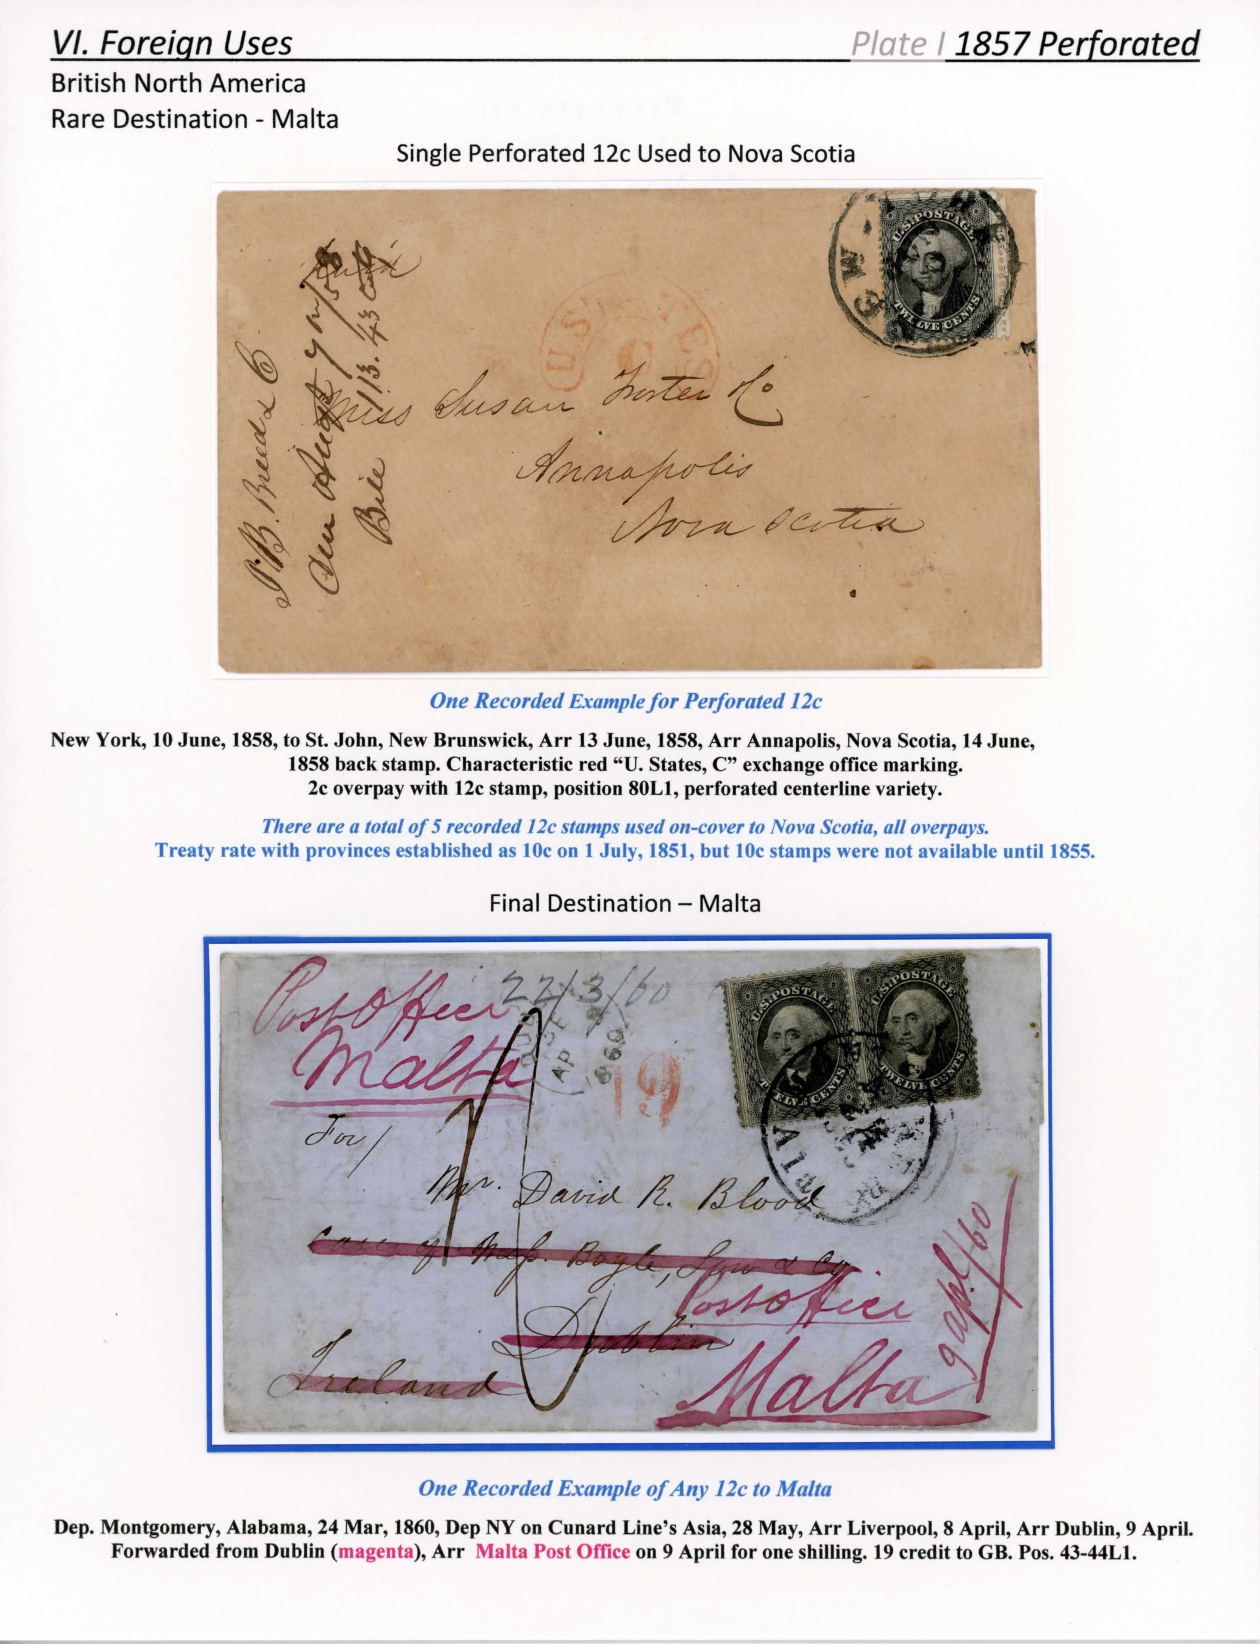 VI. Foreign Uses
Plate I 1857 Perforated
British North America
Rare Destination - Malta
Single Perforated 12c Used to Nova Scotia
U.S. POSTAGE
TWELVE CENTS
U STATES
C
Miss Susan Foster
Annapolis
Nova Scotia
Bill
One Recorded Example for Perforated 12c
New York, 10 June, 1858, to St. John, New Brunswick, Arr 13 June, 1858, Arr Annapolis, Nova Scotia, 14 June,
1858 back stamp. Characteristic red “U. States, C” exchange office marking.
2c overpay with 12c stamp, position 80L1, perforated centerline variety.
There are a total of 5 recorded 12c stamps used on-cover to Nova Scotia, all overpays.
Treaty rate with provinces established as 10c on 1 July, 1851, but 10c stamps were not available until 1855.
Final Destination – Malta
Post Office
22/3/60
Malta
19
U.S. POSTAGE
TWELVE CENTS
U.S. POSTAGE
TWELVE CENTS
For/
Mr. David R. Blood
Care of Mess. Boyle, Low & Co.
Dublin
Ireland
Post Office
Malta
9 apl/60
One Recorded Example of Any 12c to Malta
Dep. Montgomery, Alabama, 24 Mar, 1860, Dep NY on Cunard Line’s Asia, 28 May, Arr Liverpool, 8 April, Arr Dublin, 9 April.
Forwarded from Dublin (magenta), Arr Malta Post Office on 9 April for one shilling. 19 credit to GB. Pos. 43-44L1.